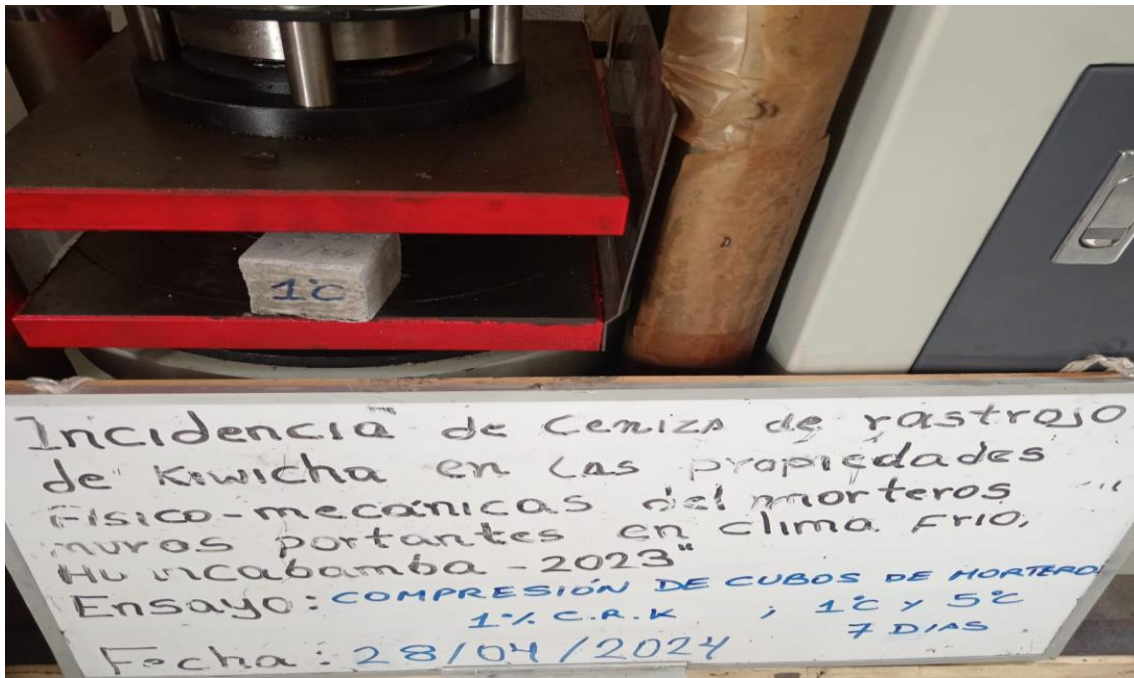 1°C
Incidencia de Ceniza de rastrojo
de Kiwicha en las propiedades
Físico-mecánicas del morteros
muros portantes en clima Frio,
Huancabamba - 2023"
Ensayo: COMPRESIÓN DE CUBOS DE MORTERO:
1% C.R.K ; 1°C y 5°C
7 DIAS
Fecha: 28/04/2024